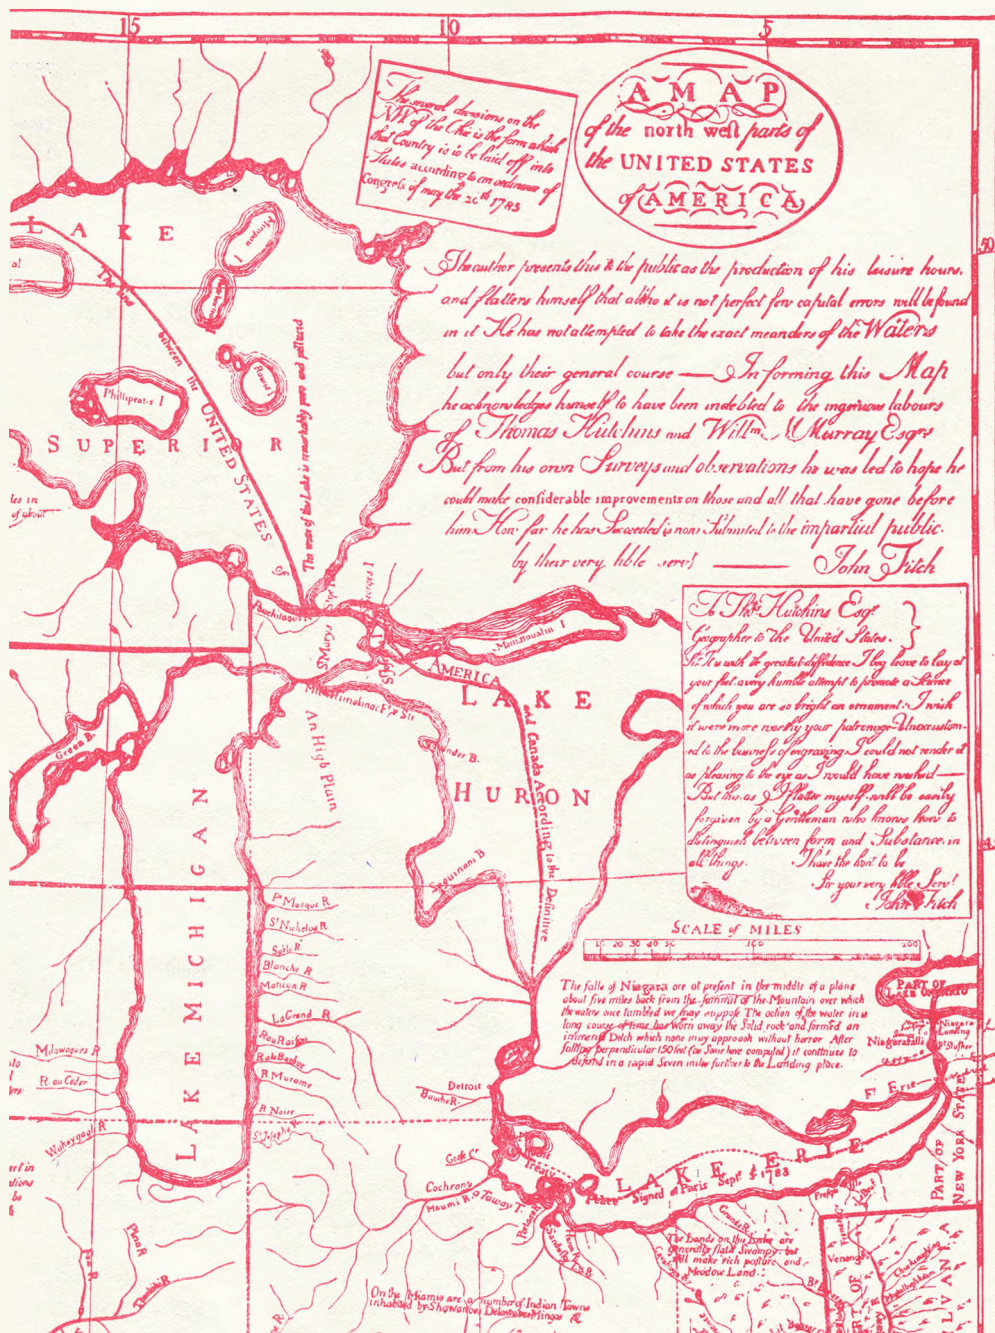 15
10
5
The several divisions on the
NW of the Ohio is the form which
that Country is to be laid off into
States according to an ordinance of
Congress of may the 20th 1785
A MAP
of the north west parts of
the UNITED STATES
of AMERICA
50
The author presents this to the public as the production of his leisure hours,
and flatters himself that altho it is not perfect few capital errors will be found
in it He has not attempted to take the exact meanders of the Waters
but only their general course — In forming this Map
he acknowledges himself to have been indebted to the ingenious labours
of Thomas Hutchins and Willm. McMurray Esqrs
But from his own Surveys and observations he was led to hope he
could make considerable improvements on those and all that have gone before
him How far he has Succeeded is now Submited to the impartial public.
by their very hble servt — John Fitch
To Thos. Hutchins Esqr.
Geographer to the United States.
Sir It is with the greatest diffidence I beg leave to lay at
your feet a very humble attempt to promote a Science
of which you are so bright an ornament: I wish
it were more worthy your patronage Unaccustom-
ed to the business of engraving I could not render it
as pleasing to the eye as I would have wished —
But this as I flatter myself will be easily
forgiven by a Gentleman who knows how to
distinguish between form and Substance in
all things. I have the hon'r to be
Sir your very hble Servt
John Fitch
SCALE of MILES
10 20 30 40 50 100 200
The falls of Niagara are at present in the middle of a plane
about five miles back from the summit of the Mountain over which
the waters once tumbled we may suppose The action of the water in a
long course of time has worn away the Solid rock and formed an
immense Ditch which none may approach without horror After
falling perpendicular 150 feet (as Some have computed) it continues to
descend in a rapid Seven miles further to the Landing place.
LAKE
SUPERIOR
The line between the UNITED STATES of AMERICA and Canada According to the Definitive Treaty of Peace Signed at Paris Sept. 3d 1783
The water of this Lake is remarkably pure and pellucid
Philippeaux I
Round I
St Marys
Manitoualin I
LAKE
HURON
An High Plain
Green B.
LAKE MICHIGAN
Saguinani B
Pt Marque R
St Nicholas R
Sable R
Blanche R
LaGrand R
Rau Raison
R la Barbue
R Marame
R Noire
St Josephs R
Milowagues R
R au Coder
Detroit
Cochrany
Maumi R
Taway T.
LAKE ERIE
F. Erie
PART OF
Niagara
Landing
Niagara Falls
PART OF
NEW YORK STATE
The Lands on this Lake are
generally flat & Swampy but
will make rich pasture and
Meadow Land
Venango
On the Miamis are a number of Indian Towns
inhabited by Shawanoes Delawares Mingos &c
Plan R